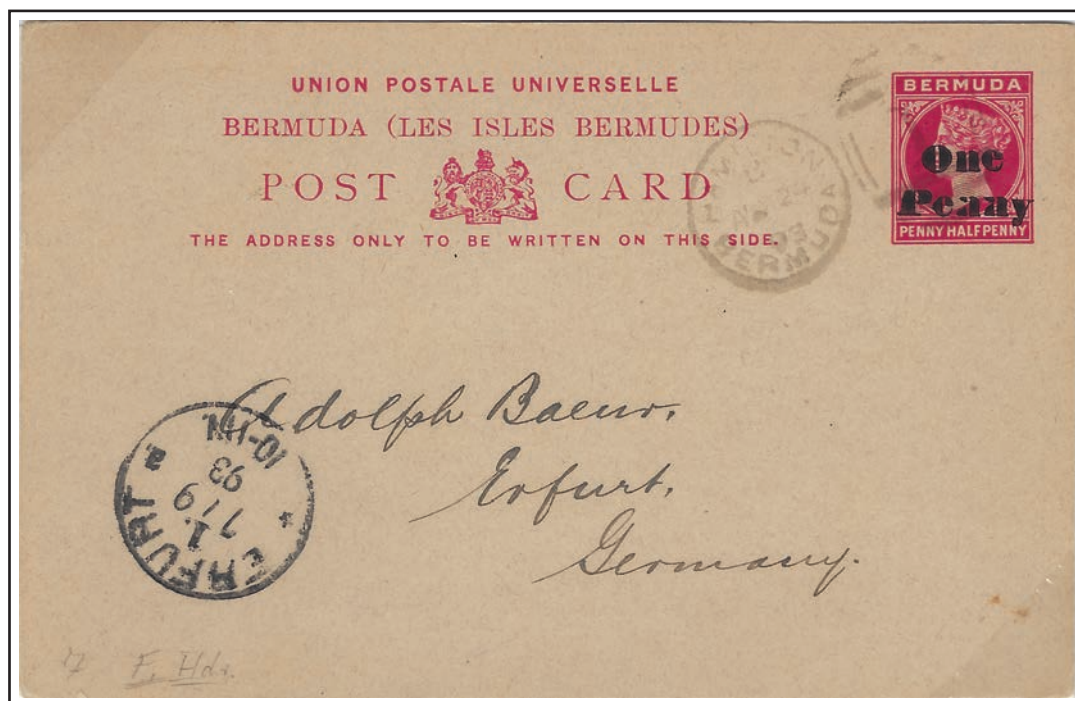 UNION POSTALE UNIVERSELLE
BERMUDA (LES ISLES BERMUDES)
POST CARD
THE ADDRESS ONLY TO BE WRITTEN ON THIS SIDE.
BERMUDA
One
Penny
PENNY HALFPENNY
HAMILTON
24
93
BERMUDA
Adolph
Erfurt,
Germany.
ERFURT
1
7/9
93
10-11V